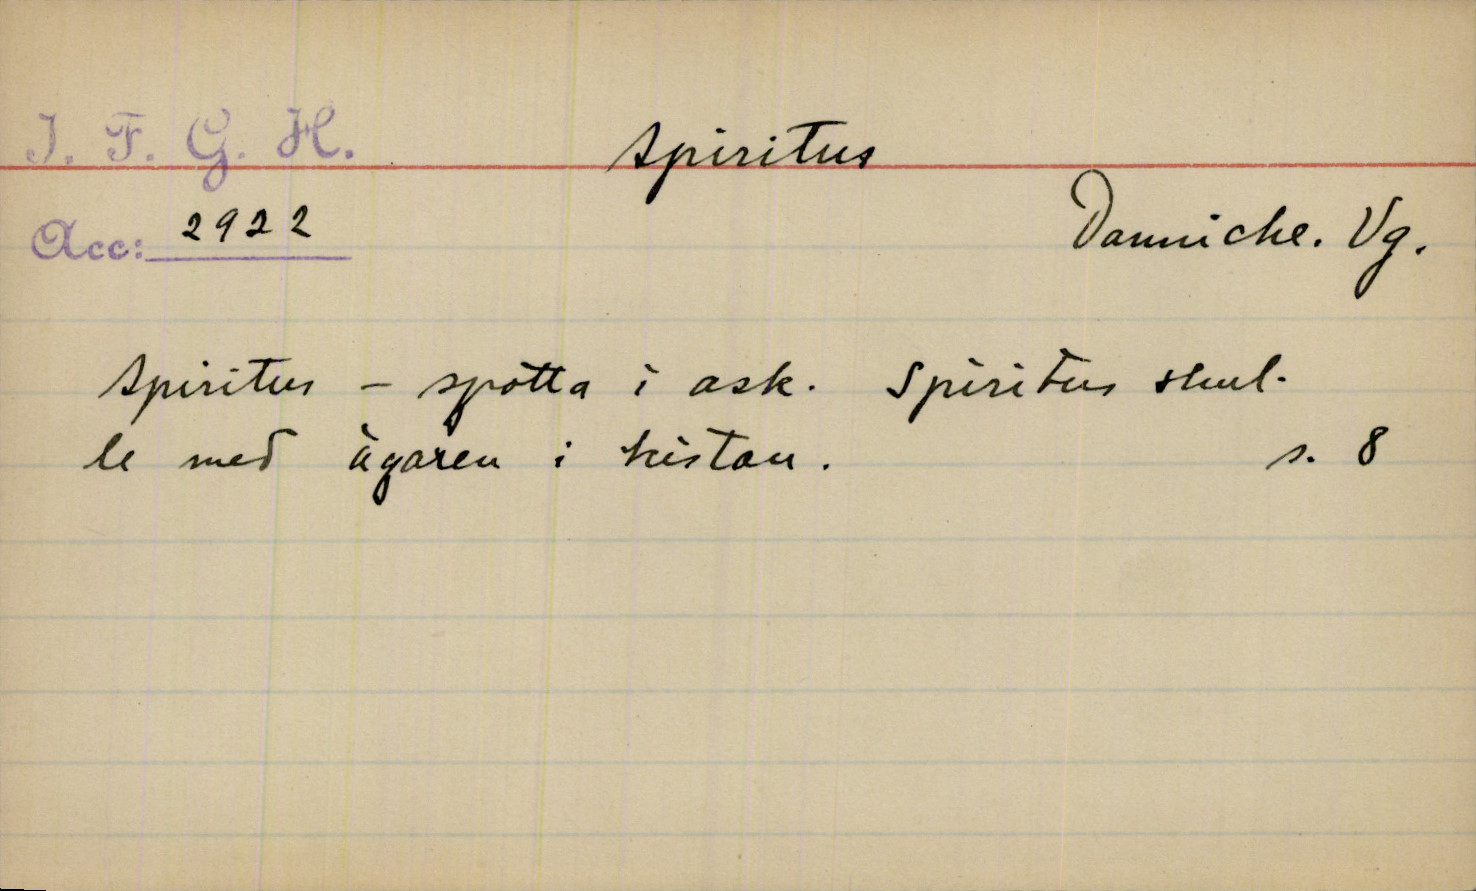 I. F. G. H.
Spiritus
Acc: 2922
Dannike. Vg.
Spiritus – spotta i ask. Spiritus skul-
le med ägaren i kistan.
s. 8